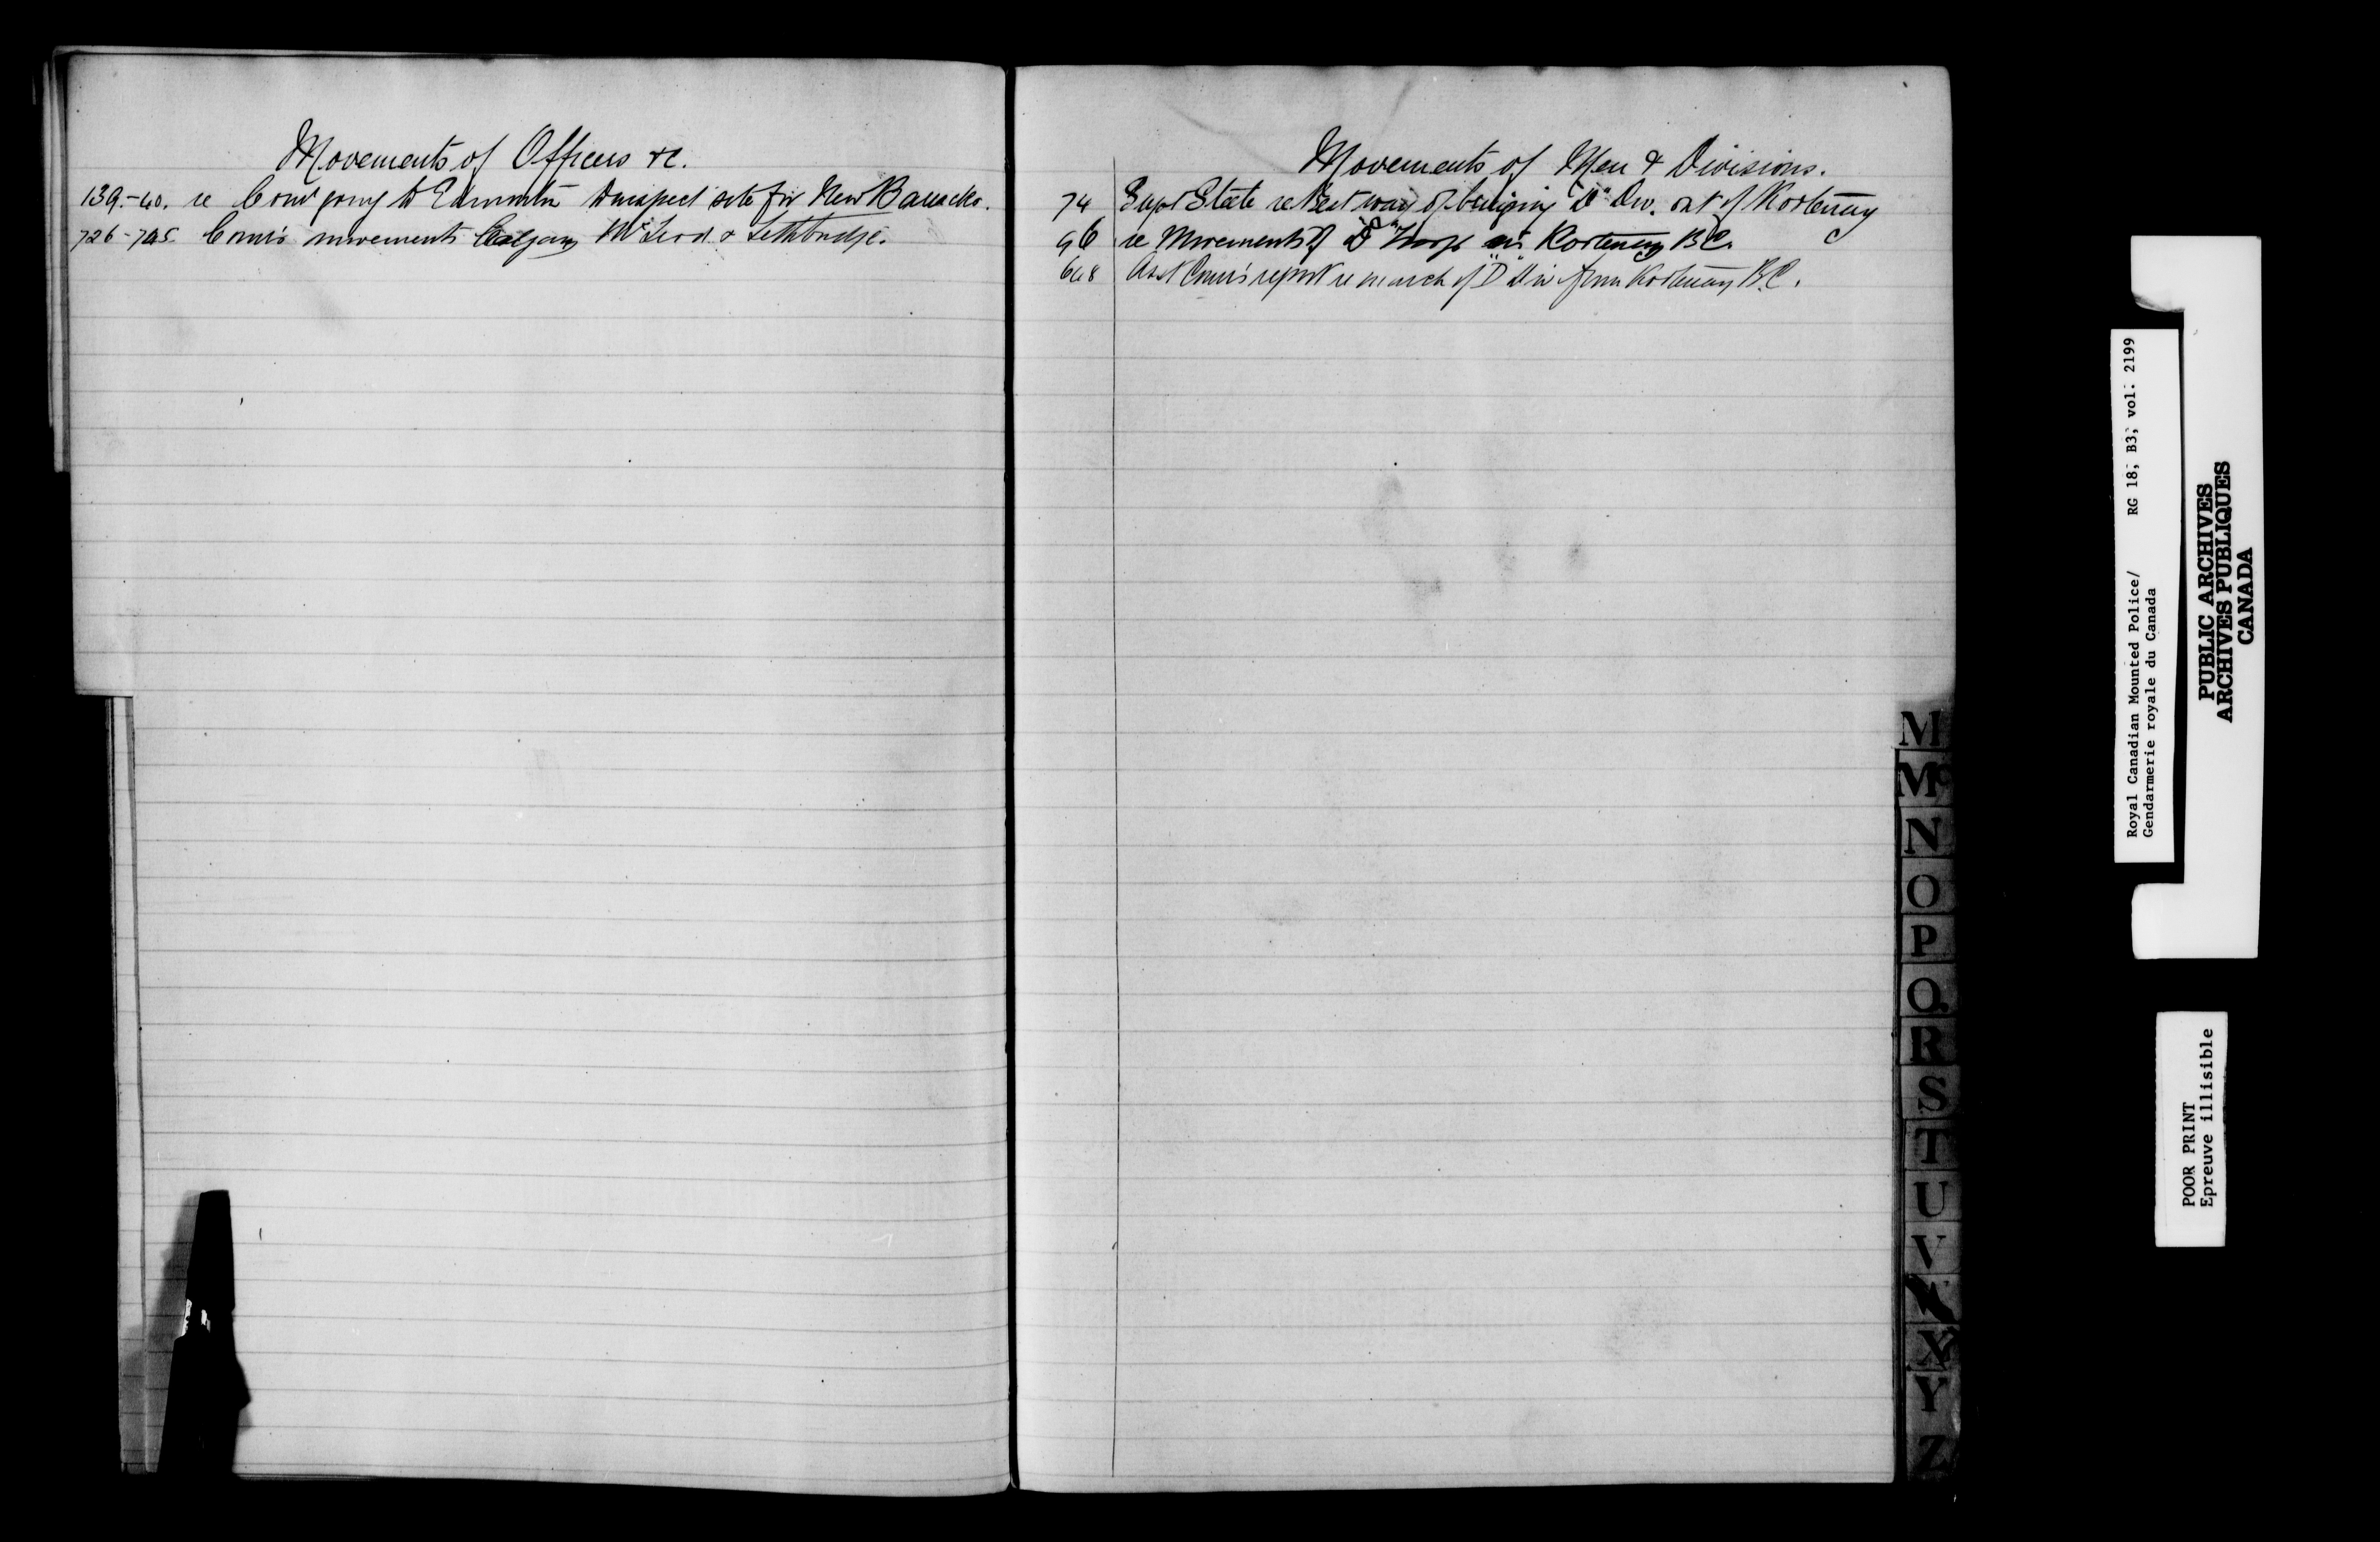 Movements of Officers &c.
139.-40. re Comr going to Edmonton to inspect site for New Barracks.
726-745. Comr's movements Calgary McLeod & Lethbridge.
Movements of Men & Divisions.
74 Supt Steele re best way of bringing "D" Div. out of Kootenay
96 re Movements of "D" Troop in Kootenay B.C.
648 Asst Comr's report re march of "D" Div from Kootenay B.C.
M
Mc
N
O
P
Q
R
S
T
U
V
X
Y
Z
Royal Canadian Mounted Police/ RG 18, B3, vol. 2199
Gendarmerie royale du Canada
PUBLIC ARCHIVES
ARCHIVES PUBLIQUES
CANADA
POOR PRINT
Epreuve illisible